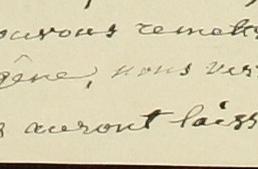 ouvons remett
gêne, nous ver
s auront laiss